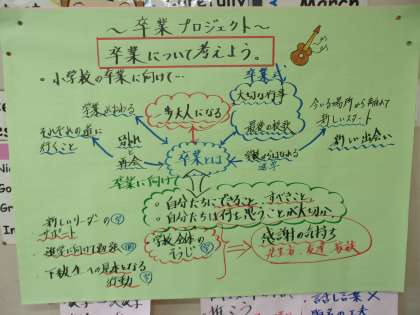 ～卒業プロジェクト～
卒業について考えよう。
・小学校の卒業に向けて…
卒業式
大切な行事
最後の校歌
一歩大人になる
今いる場所から離れて
新しいスタート
新しい出会い
それぞれの道に
行くこと
別れ
再会
卒業とは
卒業に向けて
・自分たちにできること、すべきこと
・自分たちは何を思うことが大切か
新しいリーダーの
サポート
学校全体の
そうじ
感謝の気持ち
先生方、友達、家族
・下級生への見本となる
行動